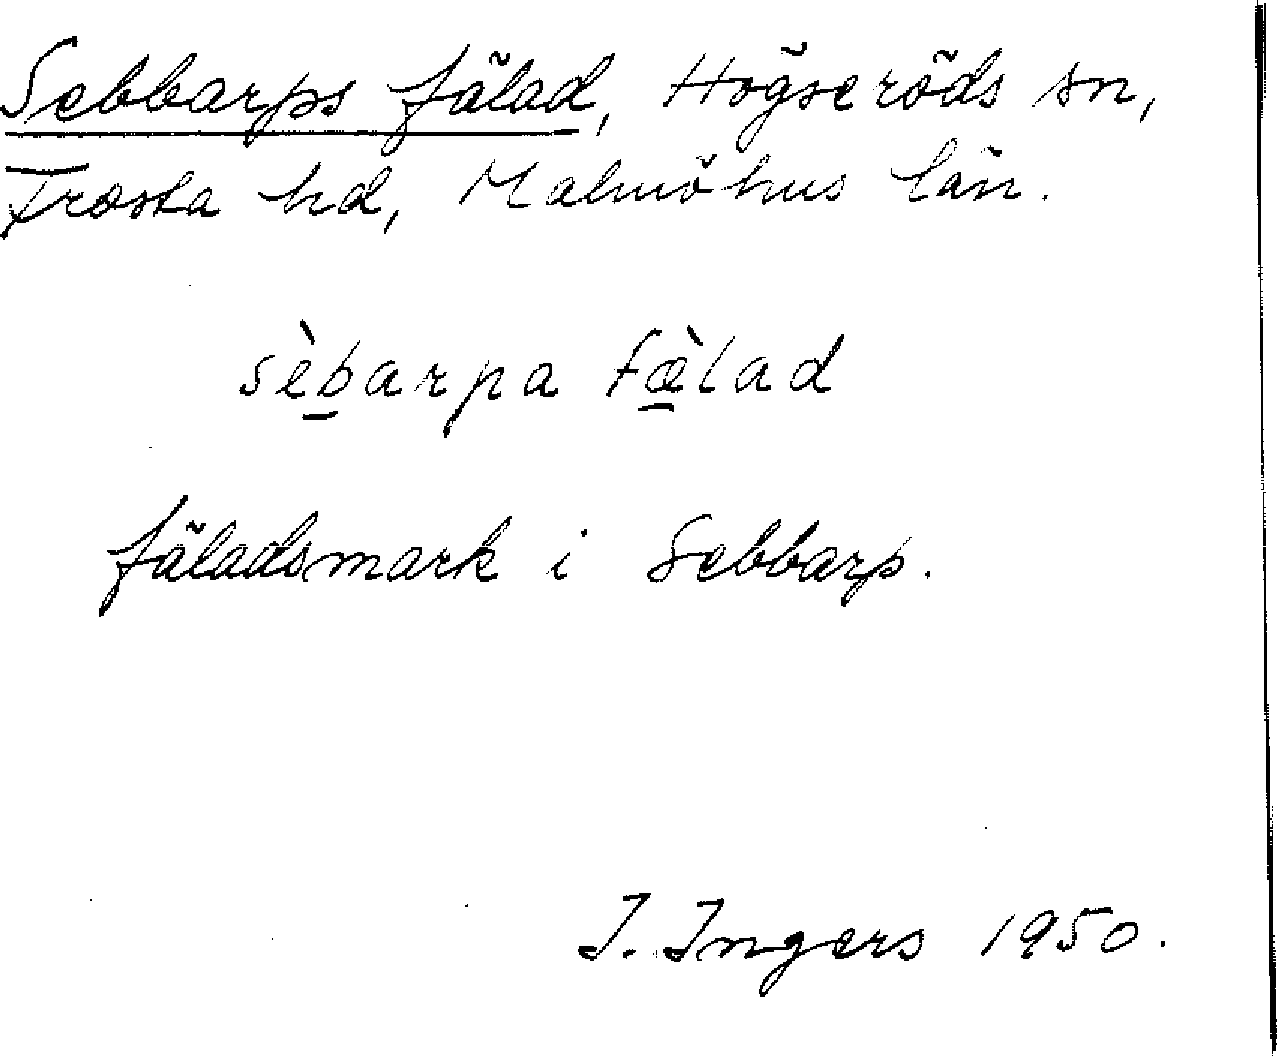 Sebbarps fälad, Högseröds sn,
Frosta hd, Malmöhus län.
sèb̲arpa fæ̲̀lad
fäladsmark i Sebbarp.
I. Ingers 1950.